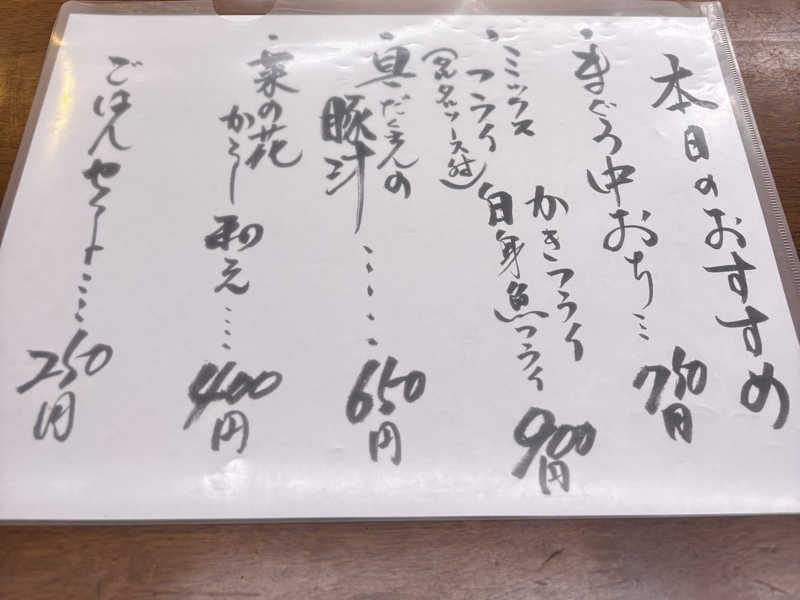 本日のおすすめ
・まぐろ中おち… 750円
・ミックスフライ かきフライ 白身魚フライ 900円
(タルタルソース付)
・具だくさんの豚汁…… 650円
・菜の花からし和え… 400円
ごはんセット…… 250円